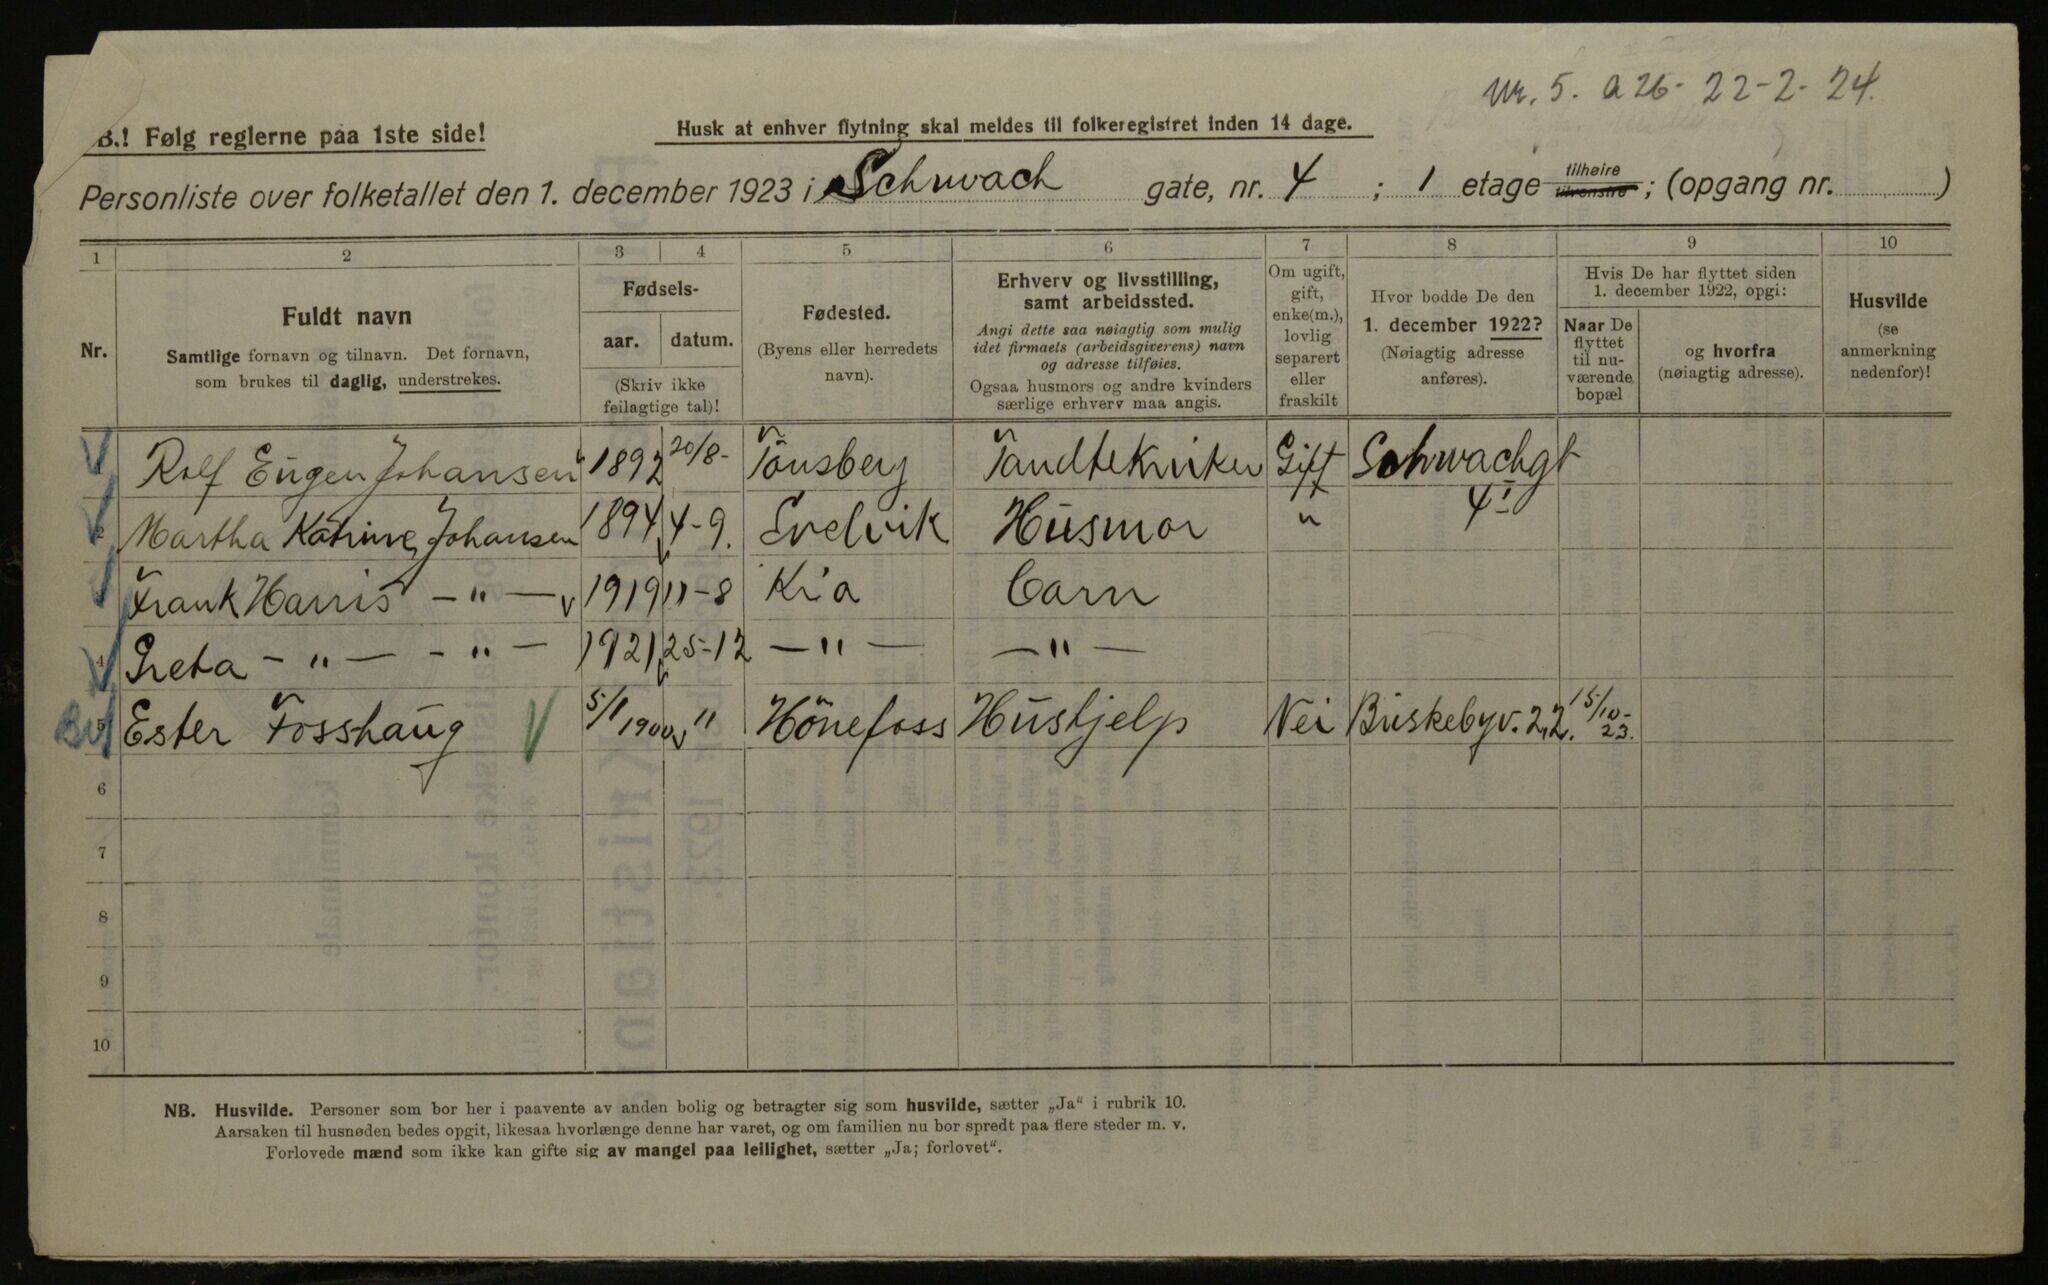 Nr. 5. a 26 - 22-2-24.
B.! Følg reglerne paa 1ste side!
Husk at enhver flytning skal meldes til folkeregistret inden 14 dage.
Personliste over folketallet den 1. december 1923 i Schwach gate, nr. 4 ; 1 etage tilhøire tilvenstre ; (opgang nr. )
1 2 3 4 5 6 7 8 9 10
Nr.
Fuldt navn
Samtlige fornavn og tilnavn. Det fornavn,
som brukes til daglig, understrekes.
Fødsels-
aar. datum.
(Skriv ikke
feilagtige tal)!
Fødested.
(Byens eller herredets
navn).
Erhverv og livsstilling,
samt arbeidssted.
Angi dette saa nøiagtig som mulig
idet firmaets (arbeidsgiverens) navn
og adresse tilføies.
Ogsaa husmors og andre kvinders
særlige erhverv maa angis.
Om ugift,
gift,
enke(m.),
lovlig
separert
eller
fraskilt
Hvor bodde De den
1. december 1922?
(Nøiagtig adresse
anføres).
Hvis De har flyttet siden
1. december 1922, opgi:
Naar De
flyttet
til nu-
værende
bopæl
og hvorfra
(nøiagtig adresse).
Husvilde
(se
anmerkning
nedenfor)!
Rolf Eugen Johansen 1892 20/8- Tönsberg Tandtekniker Gift Schwachgt
2 Martha Katrine Johansen 1894 4-9. Svelvik Husmor " 4 I
Frank Harris -"- 1919 11-8 Kria Barn
4 Greta -"- -"- 1921 25-12 -"- -"-
5 Ester Fosshaug 5/1 1900 " Hönefoss Hushjelp Nei Briskebyv. 22. 15/10-23.
6
7
8
9
10
NB. Husvilde. Personer som bor her i paavente av anden bolig og betragter sig som husvilde, sætter „Ja“ i rubrik 10.
Aarsaken til husnøden bedes opgit, likesaa hvorlænge denne har varet, og om familien nu bor spredt paa flere steder m. v.
Forlovede mænd som ikke kan gifte sig av mangel paa leilighet, sætter „Ja; forlovet“.